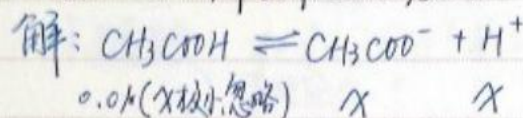 解: CH₃COOH ⇌ CH₃COO⁻ + H⁺
0.01(x较小忽略) x x